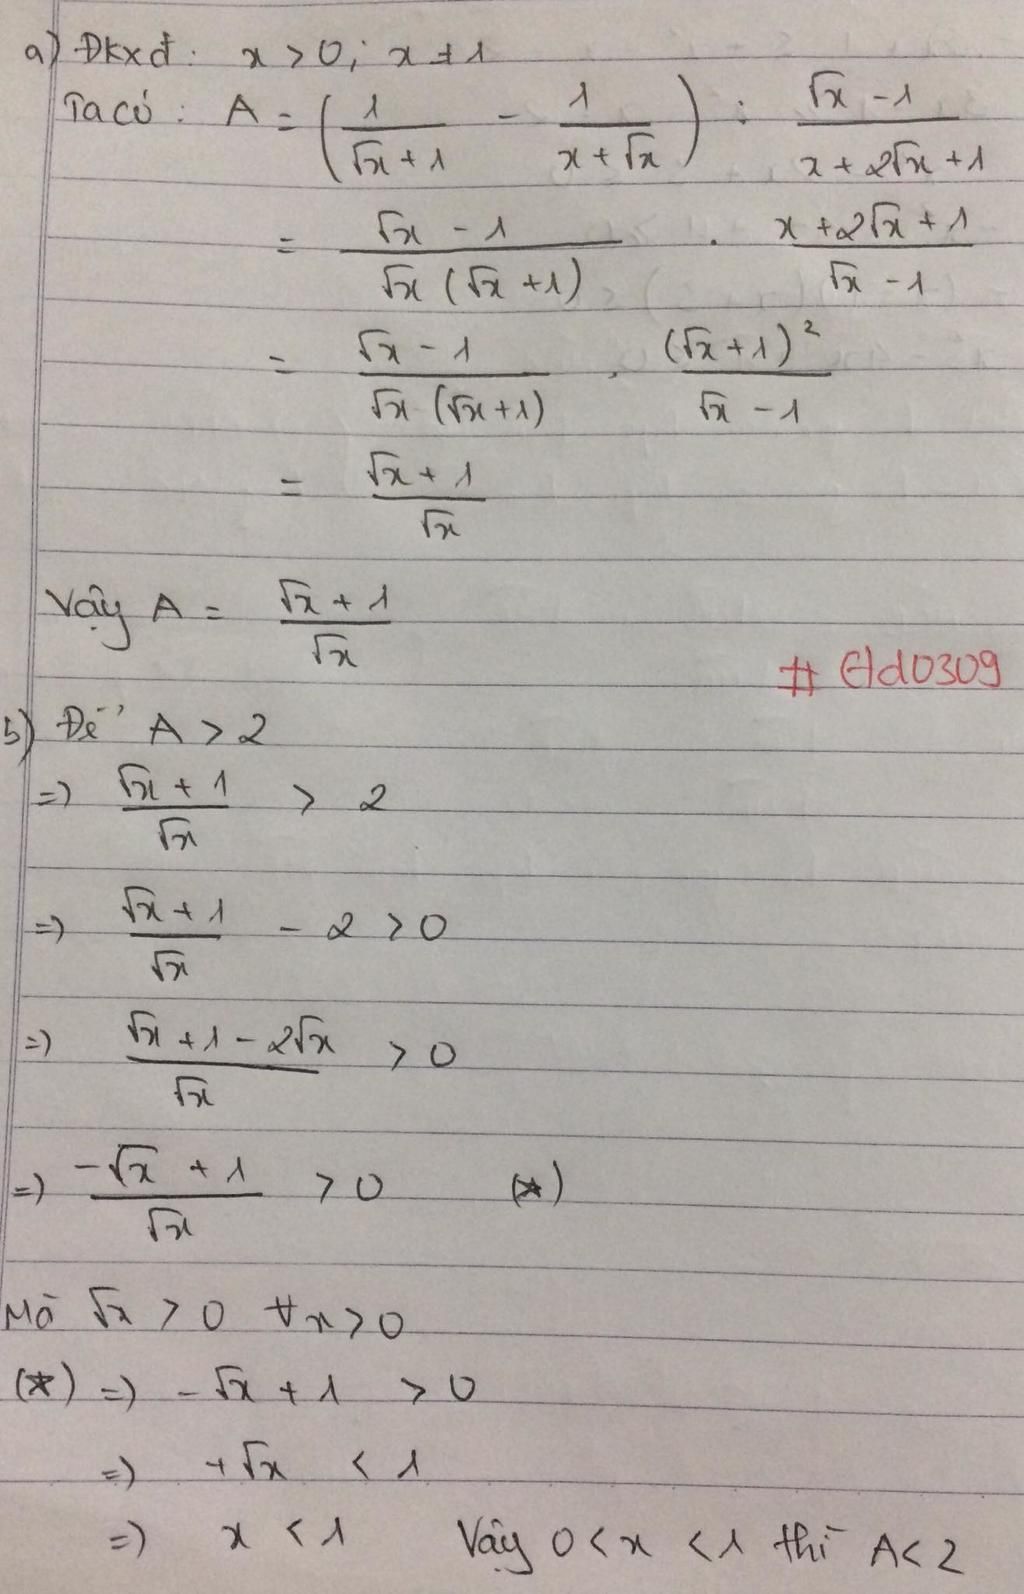 a) Đkxđ: x > 0; x ≠ 1
Ta có: A = (1/(√x + 1) - 1/(x + √x)) : (√x - 1)/(x + 2√x + 1)
= (√x - 1)/(√x (√x + 1)) . (x + 2√x + 1)/(√x - 1)
= (√x - 1)/(√x (√x + 1)) . (√x + 1)²/(√x - 1)
= (√x + 1)/√x
Vậy A = (√x + 1)/√x
# Eld0309
b) Để A > 2
=> (√x + 1)/√x > 2
=> (√x + 1)/√x - 2 > 0
=> (√x + 1 - 2√x)/√x > 0
=> (-√x + 1)/√x > 0 (*)
Mà √x > 0 ∀x > 0
(*) => -√x + 1 > 0
=> +√x < 1
=> x < 1 Vậy 0 < x < 1 thì A < 2